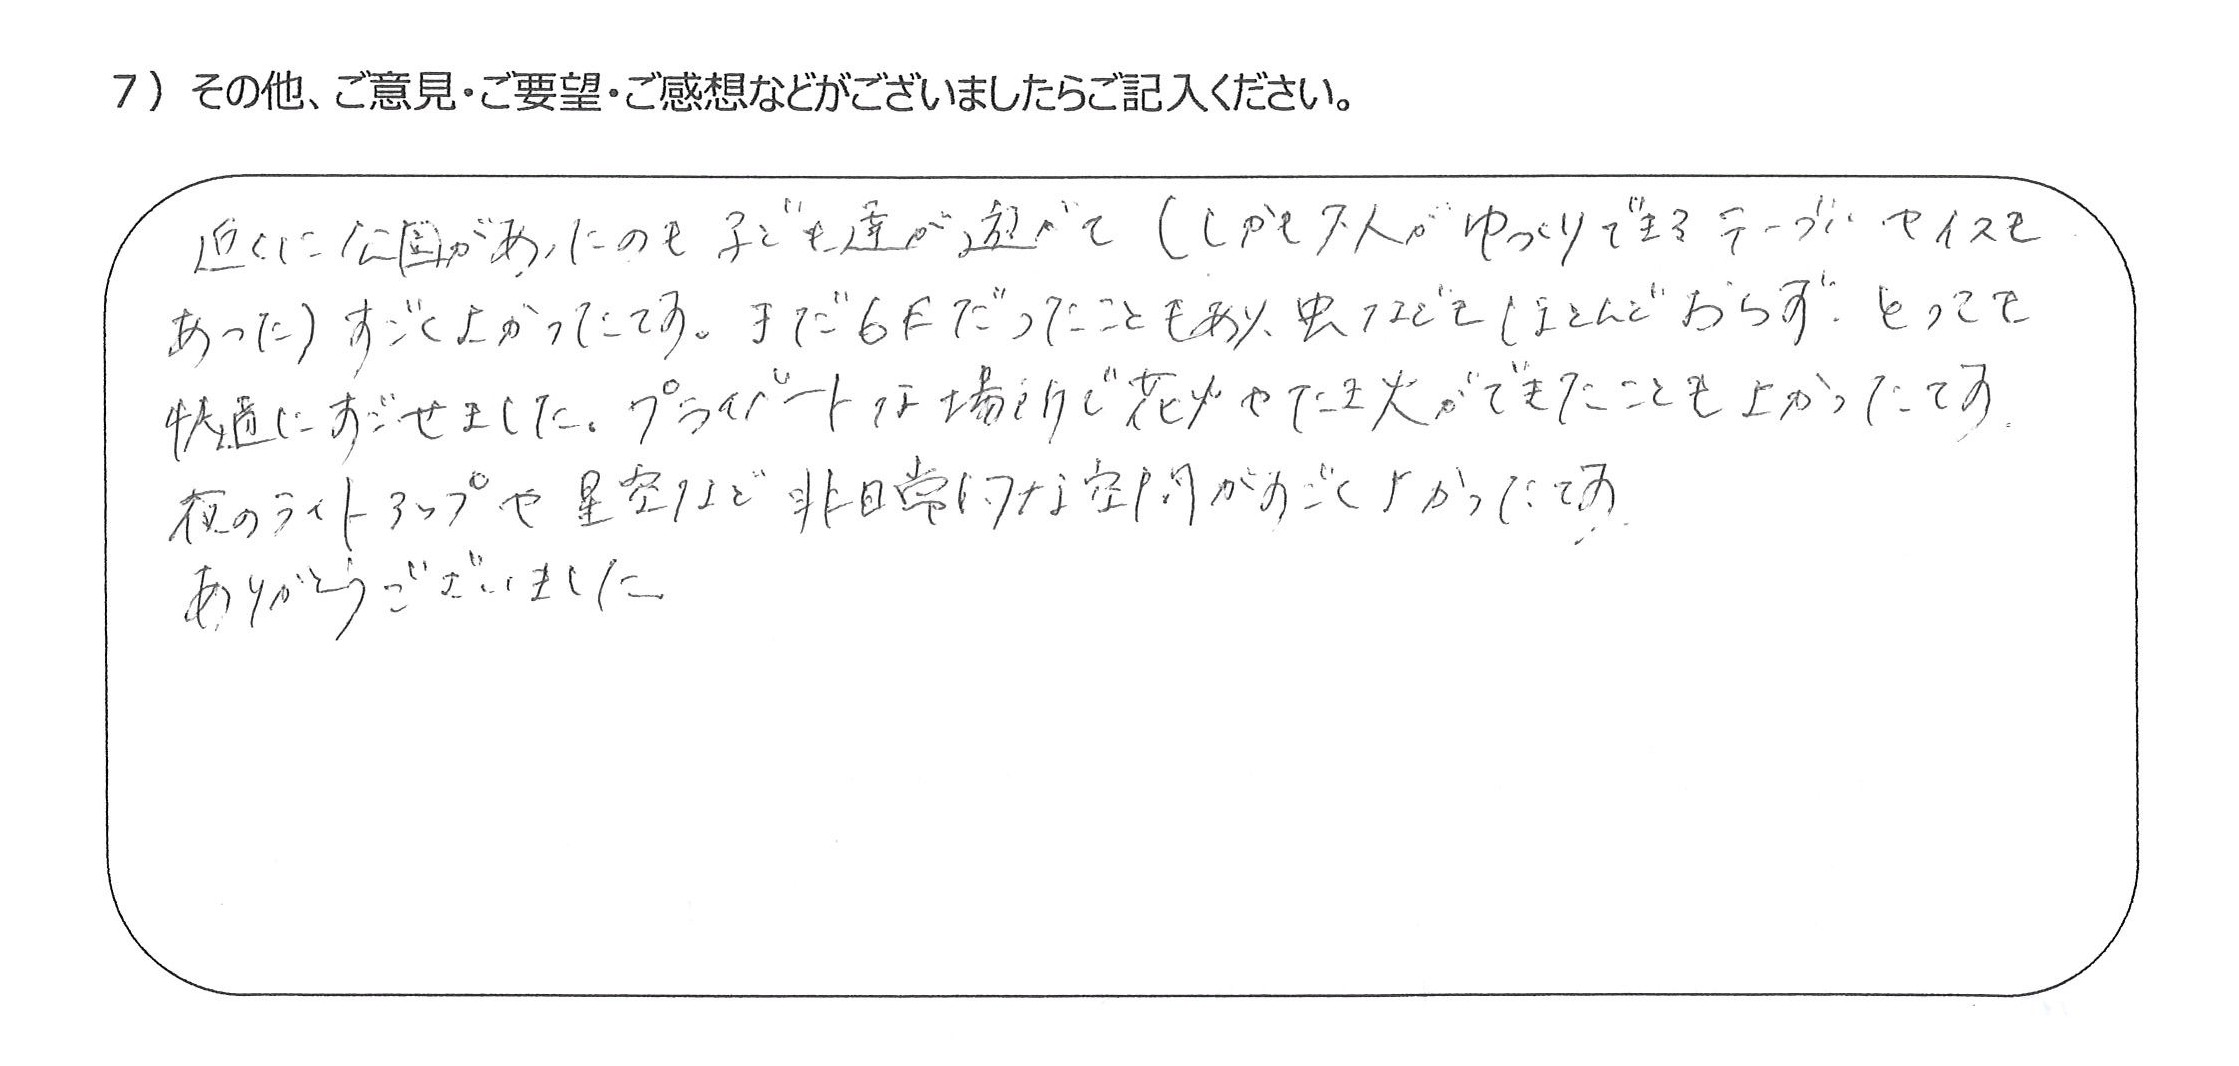 7）その他、ご意見・ご要望・ご感想などがございましたらご記入ください。
近くに公園があったのも子ども達が遊べて（しかも大人がゆっくりできるテーブルやイスも
あった）すごくよかったです。まだ6月だったこともあり、虫などもほとんどおらず、とっても
快適にすごせました。プライベートな場所で花火やたき火ができたこともよかったです。
夜のライトアップや星空など非日常的な空間がすごくよかったです。
ありがとうございました